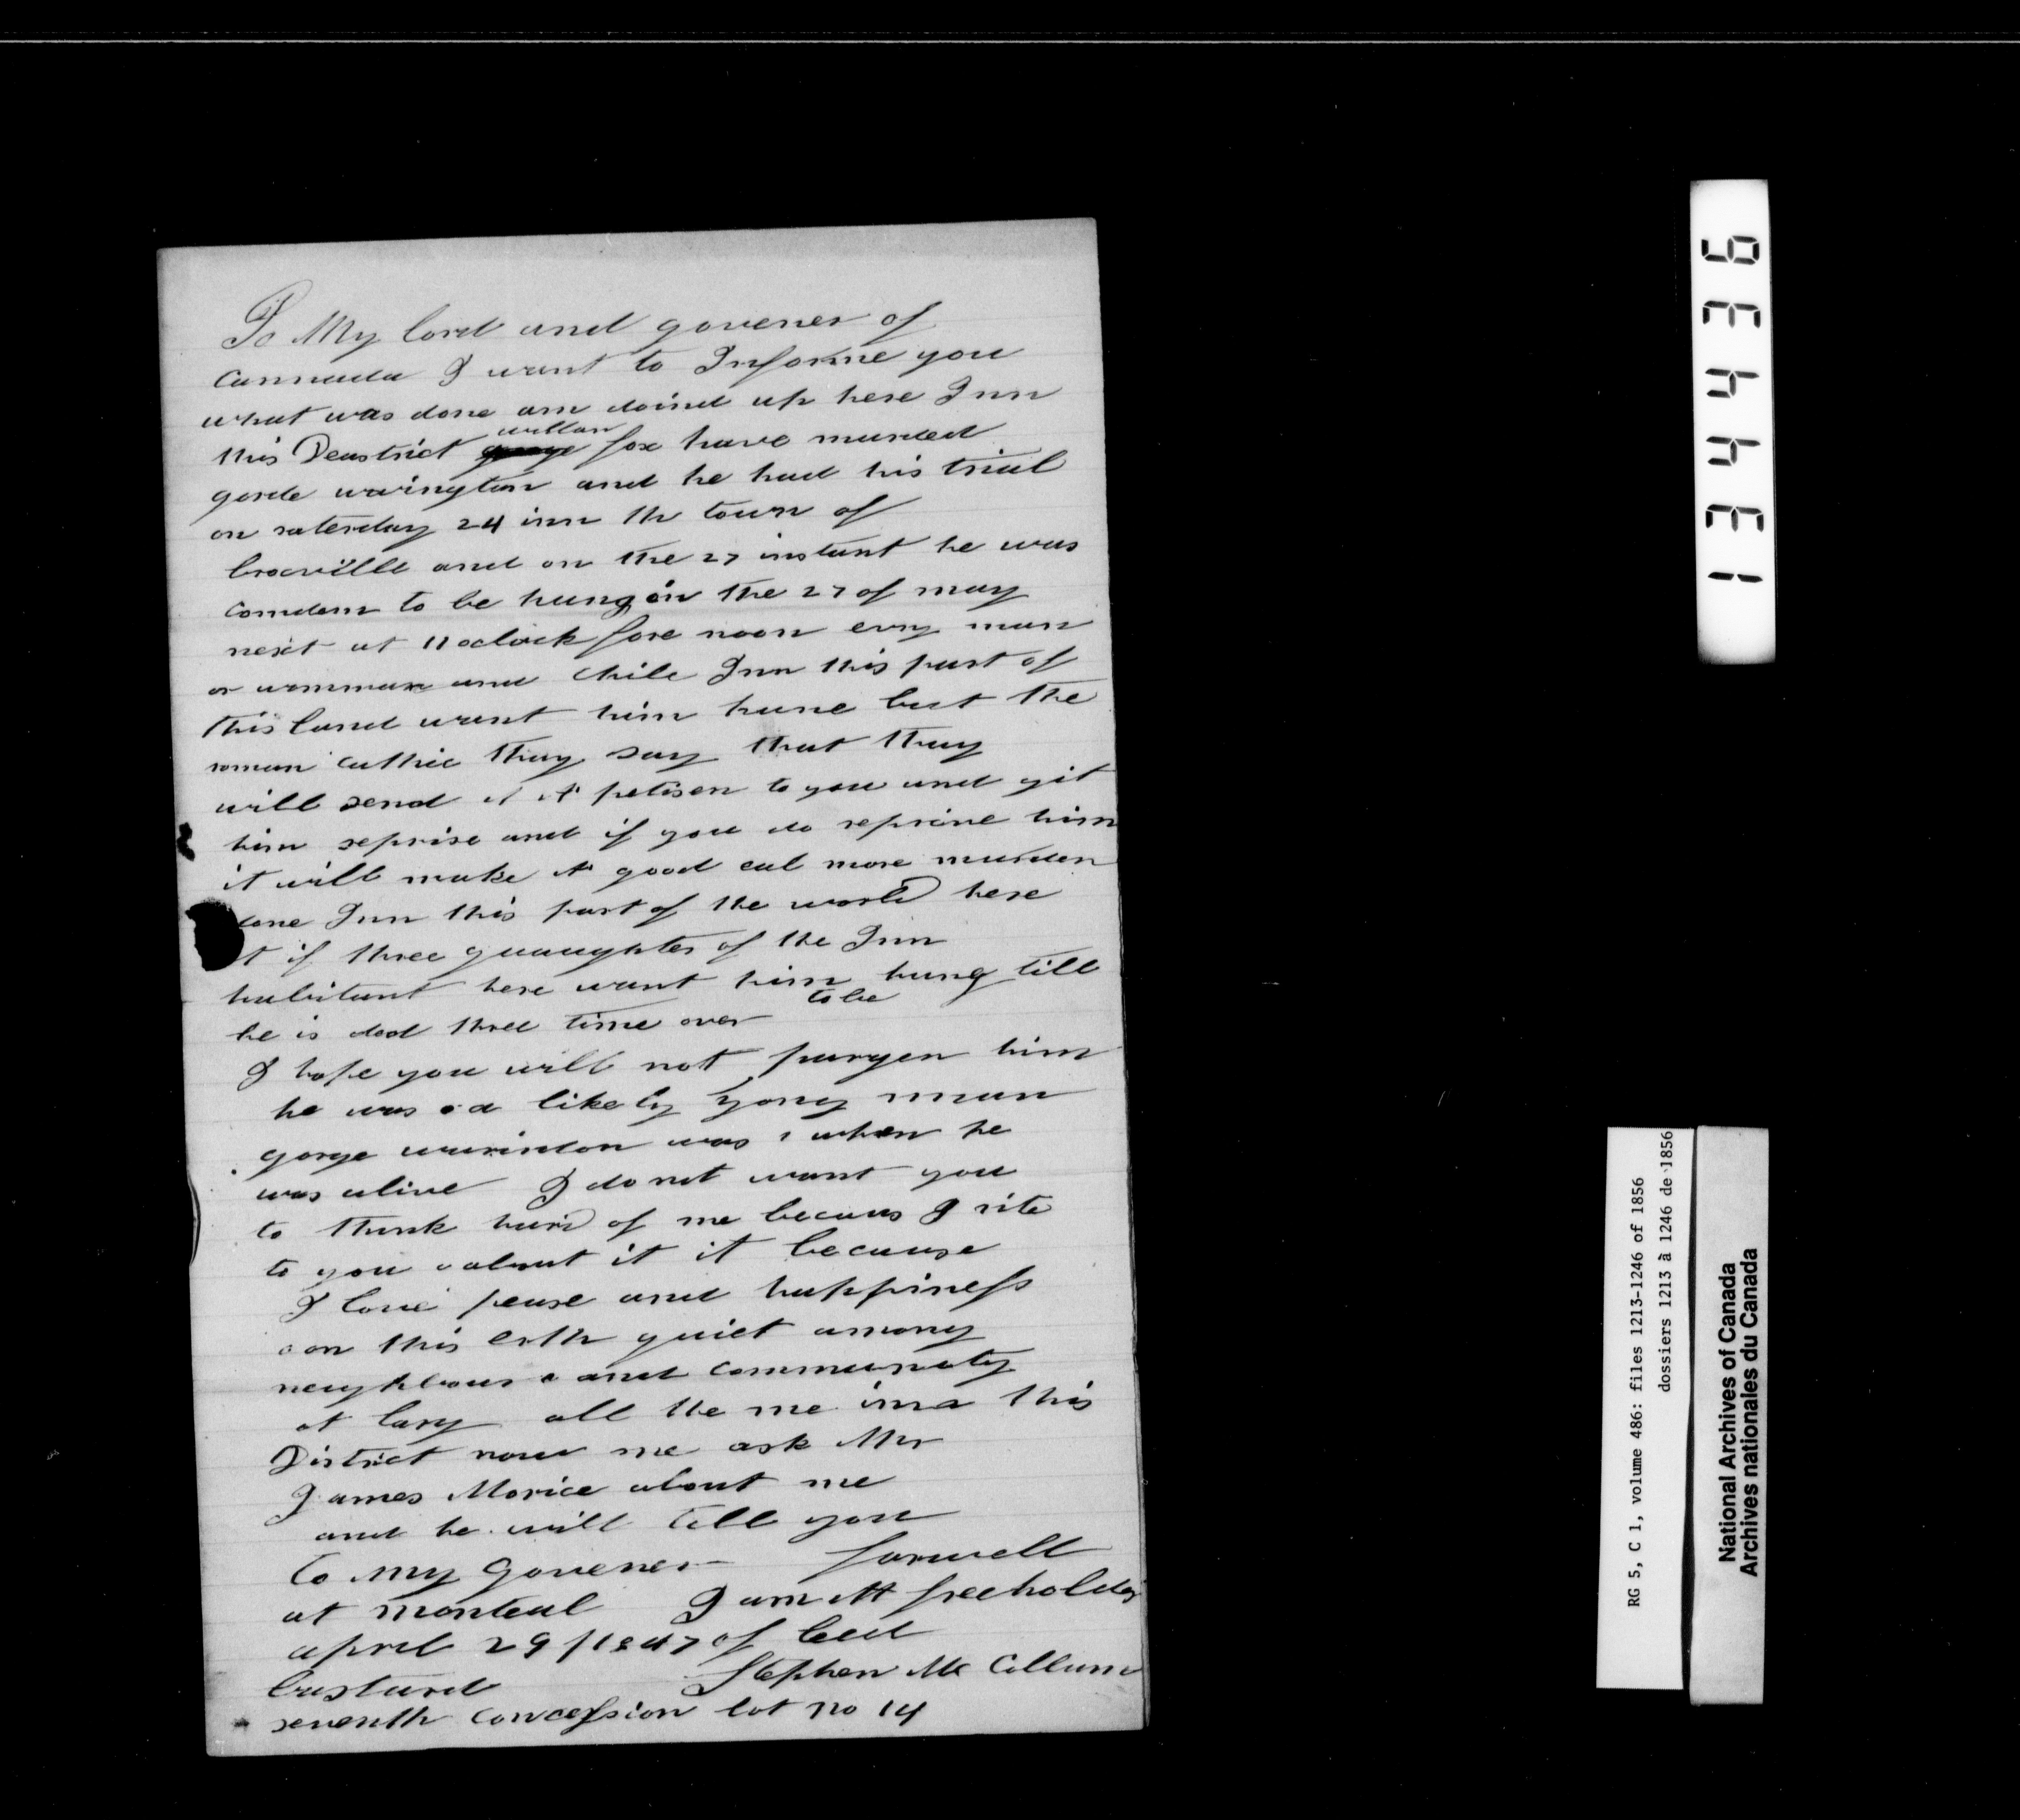 To My lord and govener of
Cannada I want to Informe you
what was done am doind up here Inn
this Deastrict willam fox have murded
gorde wavington and he had his trial
on saterday 24 inn the town of
brocville and on the 27 instant he was
comdem to be hung on the 27 of may
next at 11 oclock fore noon evry man
or womman and Chile Inn this part of
this land want him hune but the
roman cathic thay say that thay
will send a A petisen to you and git
him reprise and if you do reprive him
it will make A good eal more murder
done Inn this part of the world here
t if three quaughter of the Inn
habitant here want him hung till
he is ded three time over to be
I hope you will not pargen him
he was a likely yong man
gorge warinton was when he
was alive I do not want you
to think hard of me becaus I rite
to you about it it because
I love pease and happiness
on this erth quiet among
neyghbour and communaty
at larg all the me inn this
District now me ask Mr
James Morice about me
and he will tell you
to My Govener farwell
at monteal I am A freeholder
april 29 1847 of leed
bastard Stephen Mc Collum
seventh concession lot no 14
134436
RG 5, C 1, volume 486: files 1213-1246 of 1856
dossiers 1213 à 1246 de 1856
National Archives of Canada
Archives nationales du Canada